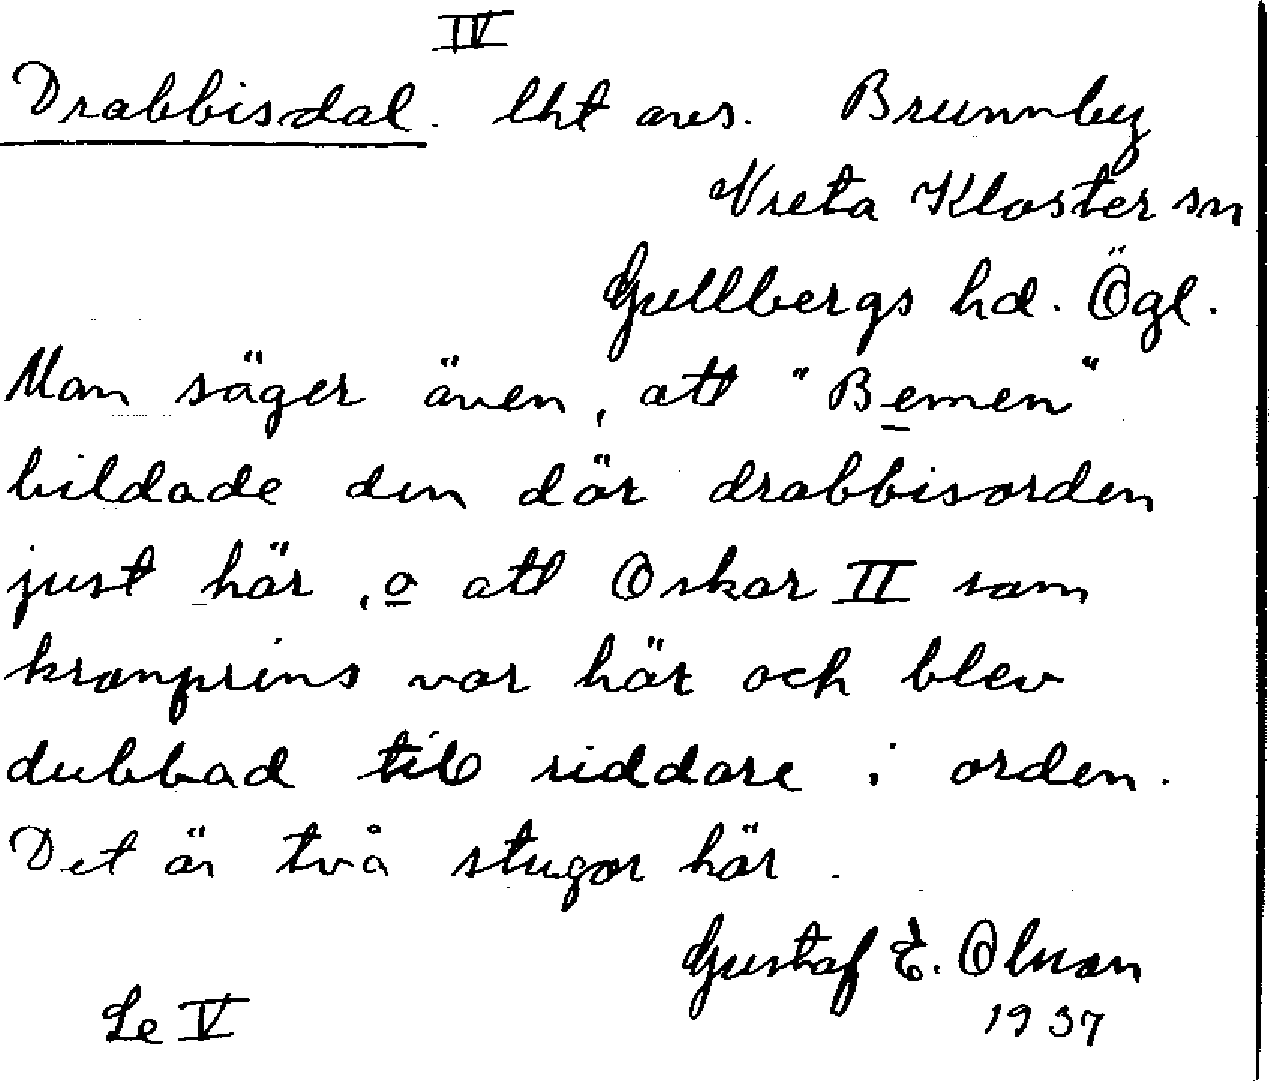 IV
Drabbisdal. lht avs. Brunnby
Vreta Kloster sn
Gullbergs hd. Ögl.
Man säger även, att "Bemen"
bildade den där drabbisorden
just här, o att Oskar II som
kronprins var här och blev
dubbad till riddare i orden.
Det är två stugor här.
Gustaf E. Olson
1937
Se V